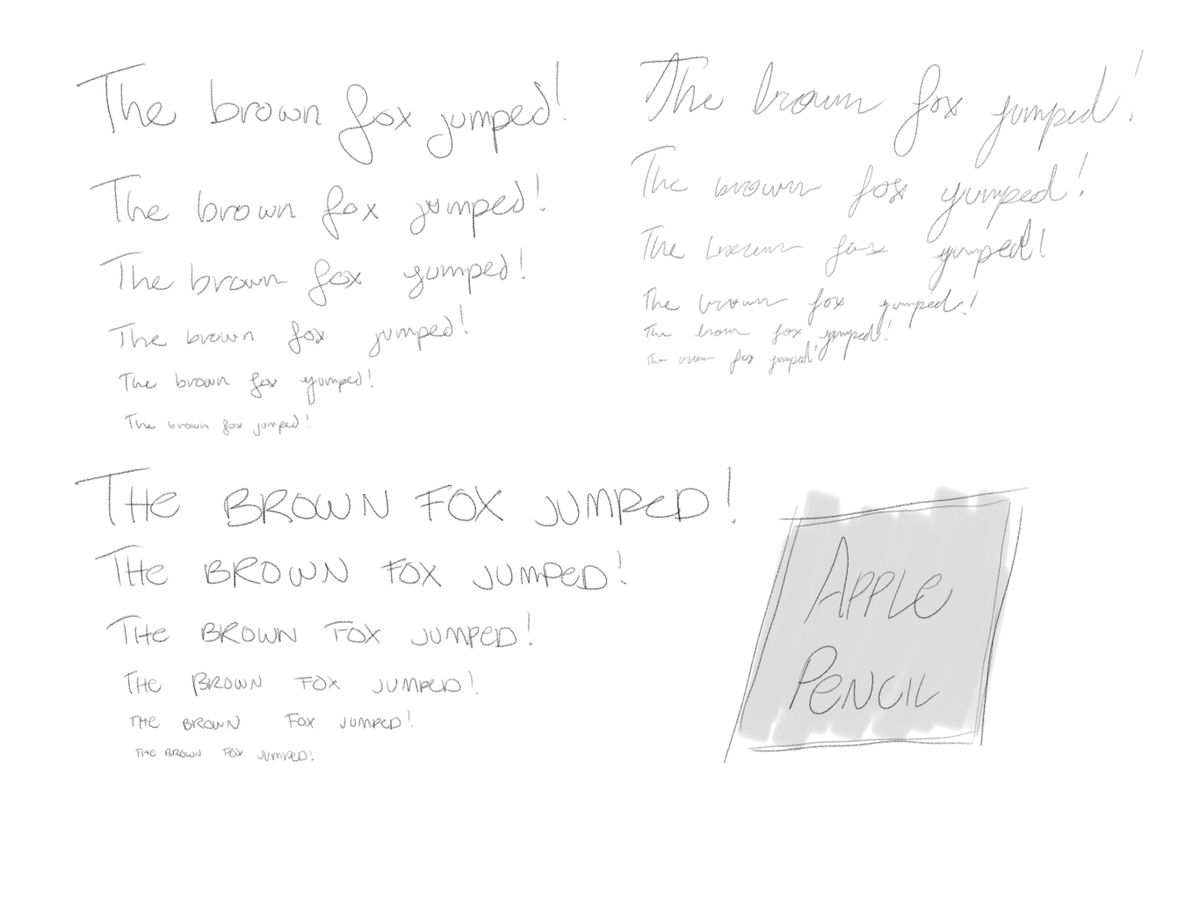 The brown fox jumped!
The brown fox jumped!
The brown fox yumped!
The brown fox jumped!
The brown fox yumped!
The brown fox jumped!
The brown fox jumped!
The brown fox yumped!
The brown fox yumped!
The brown fox yumped!
The brown fox jumped!
The brown fox jumped!
THE BROWN FOX JUMPED!
THE BROWN FOX JUMPED!
THE BROWN FOX JUMPED!
THE BROWN FOX JUMPED!
THE BROWN FOX JUMPED!
THE BROWN FOX JUMPED!
APPLE
PENCIL